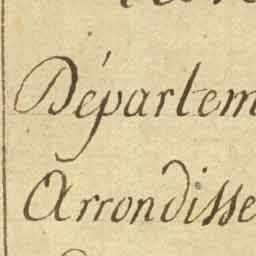 Départem
Arrondisse